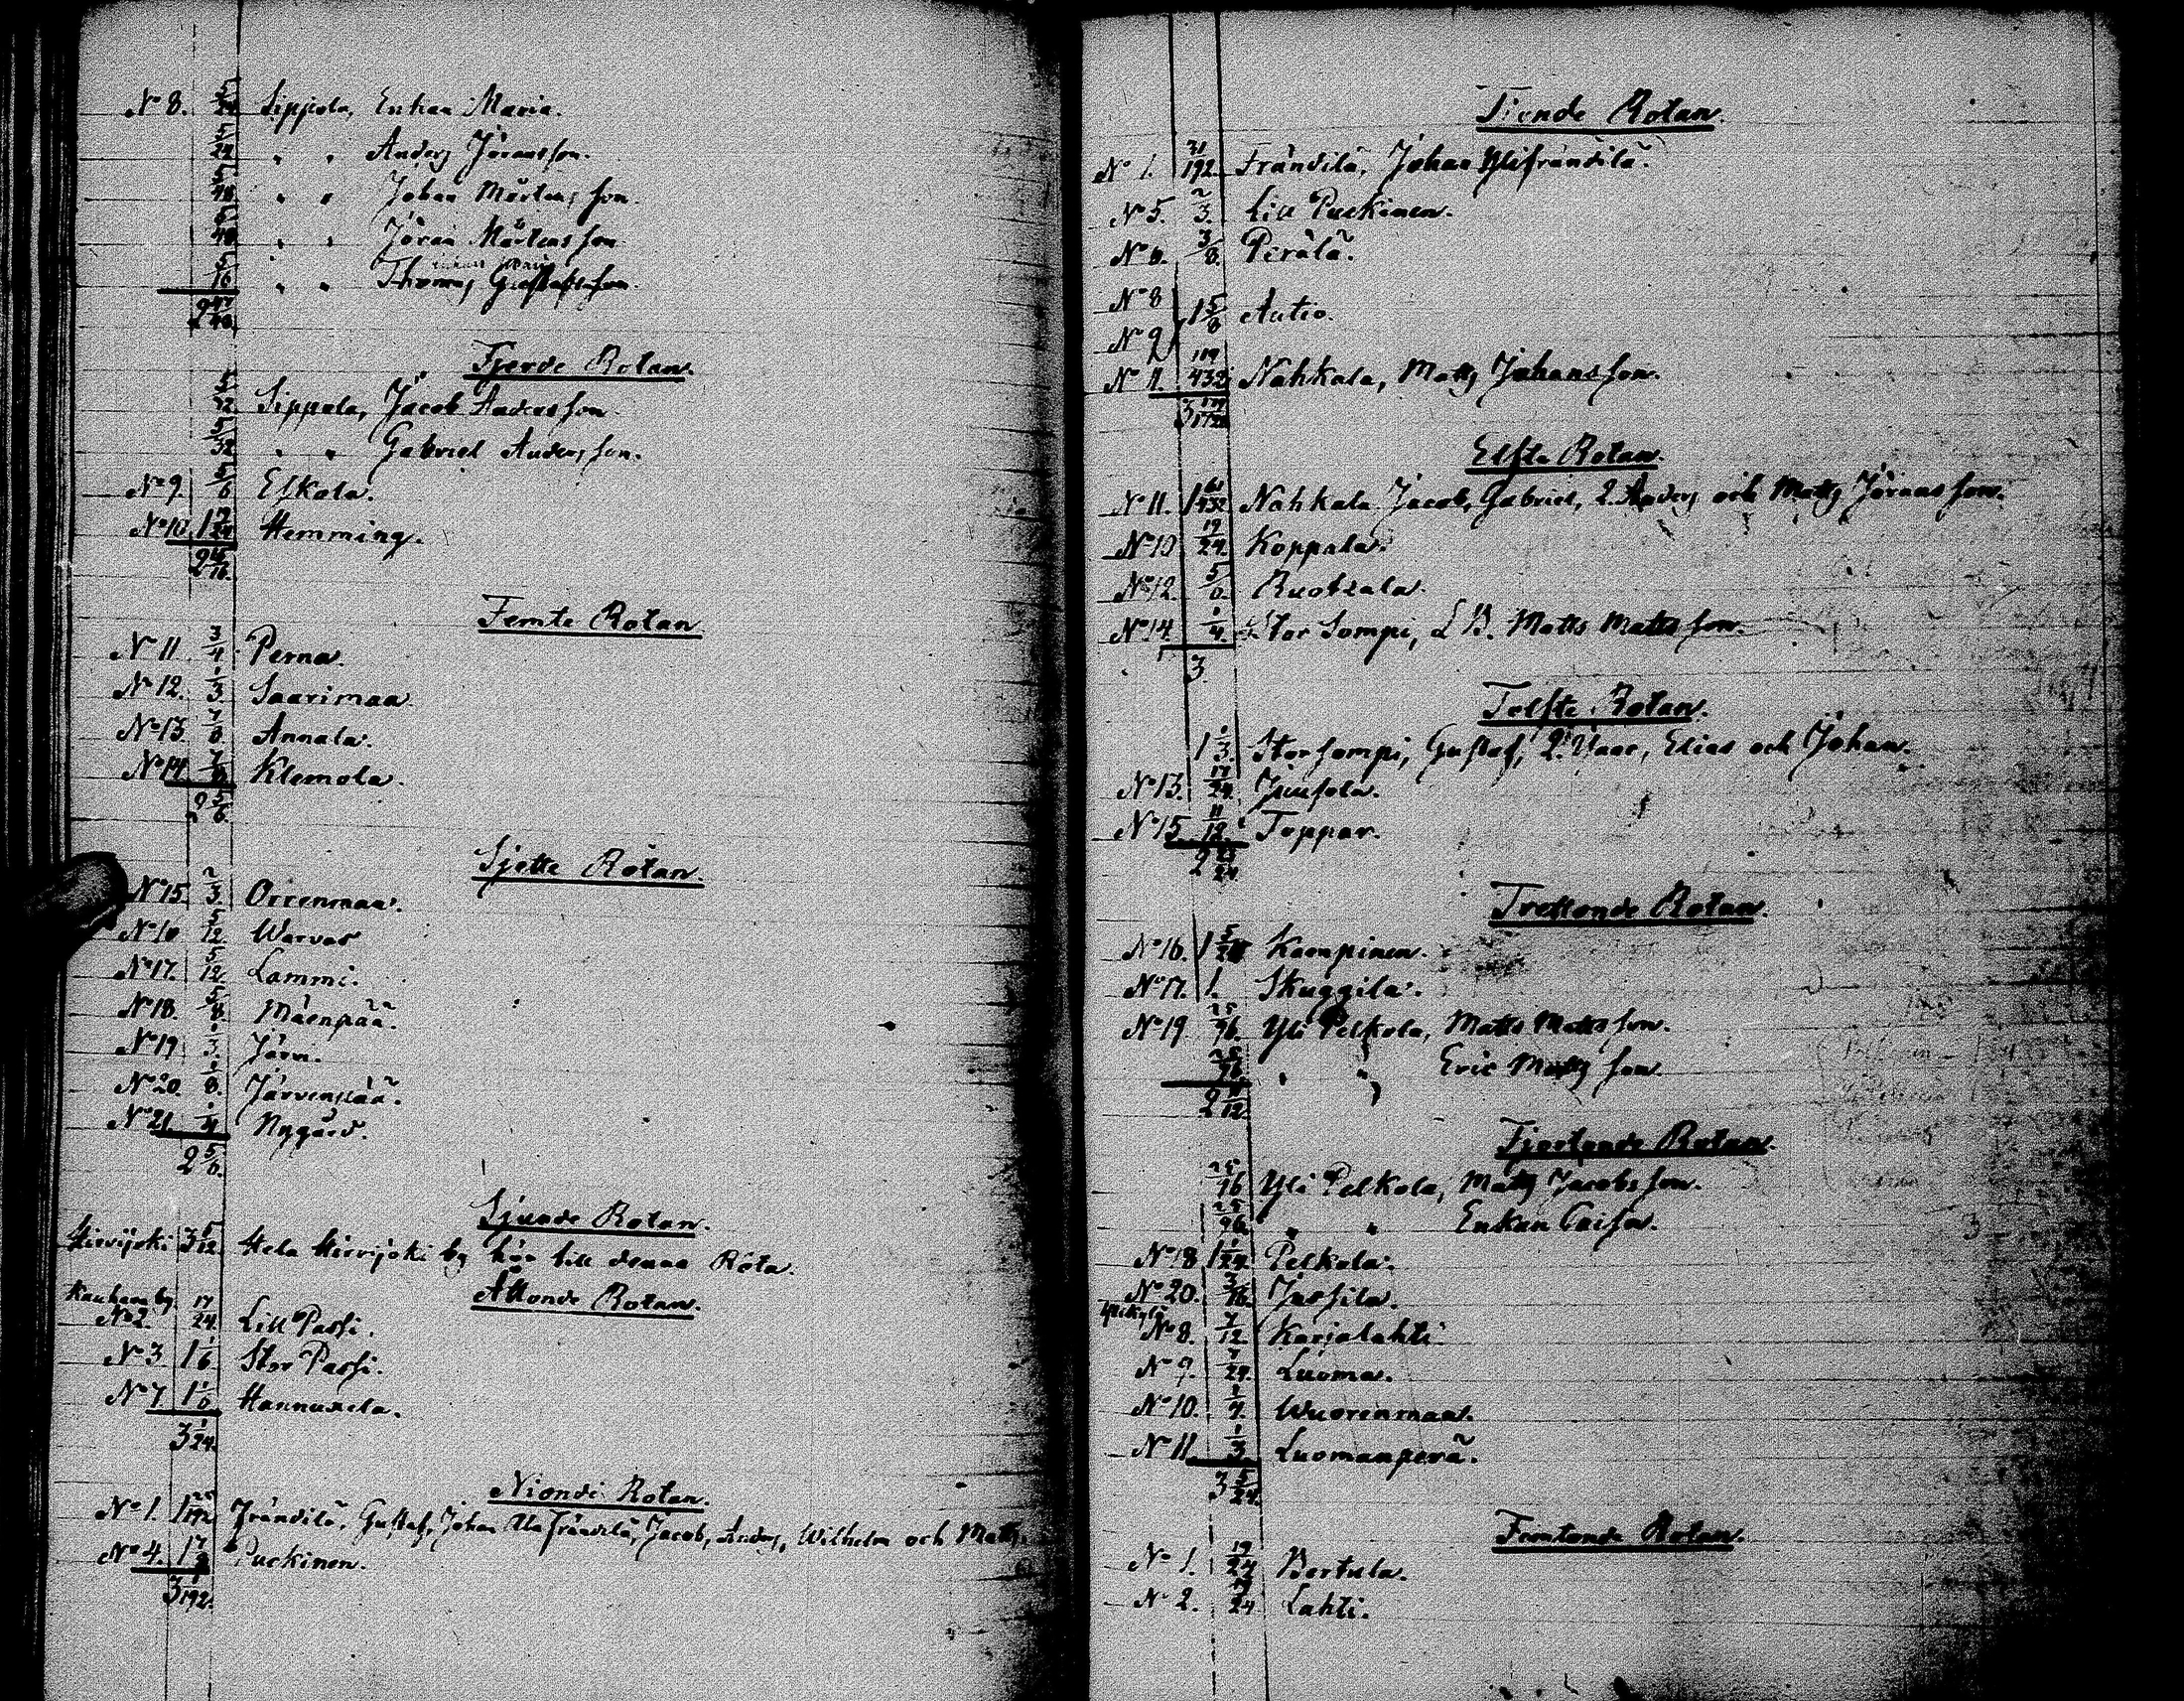 No 8. 5/24 Sippola, Enkan Maria.
5/24 " " Anders Jöransson.
5/48 " " Johan Mårtensson.
5/48 " " Jöran Mårtensson
5/16 " " Thomas Gustafsson.
2 47/48
Fjerde Rotan.
5/32 Sippola, Jacob Andersson.
5/32 " " Gabriel Andersson.
No 9. 5/6 Eskola.
No 10 1 Hemming.
2
Femte Rotan
No 11 3/4 Perna.
No 12. 1/3 Saarimaa.
No 13. 7/8 Annala.
No 14. 7/8 Klemola.
2 5/6.
Sjette Rotan.
No 15 2/3 Orrenmaa.
No 16 5/12. Warvas
No 17. 5/12 Lammi.
No 18. 5/8 Mäenpää.
No 19 1/3. Järvi.
No 20. 1/8. Järvenpää.
No 21. 1/4 Nygård.
2 5/6.
Sjunde Rotan.
Hirvijoki 3 5/12 Hela Hirvijoki by hör till denna Rota.
Åttonde Rotan.
Kauhava by
No 2. 17/24. Lill Passi.
No 3 1 1/6 Stor Passi.
No 7 1 1/6 Hannuxela.
3 1/24.
Nionde Rotan.
No 1. 1 25/192 Frändilä, Gustaf, Johan Ala frändilä, Jacob, Anders, Wilhelm och Matts.
No 4. 1 7/8 Puckinen.
3 1/192.
Tionde Rotan.
No 1. 31/192. Frändilä, Johan Ylifrändilä.
No 5. 2/3. Lill Puckinen.
No 6. 3/8. Perälä.
No 8
1 5/8 Autio.
No 9
No 11. 119/432 Nahkala, Matts Johansson.
3
Elfte Rotan.
No 11. 1 61/432 Nahkala Jacob, Gabriel, 2. Anders och Matts Jöransson.
No 10 19/24. Koppala.
No 12. 5/6. Ruotzala.
No 14 1/4. Stor Sompi, L B. Matts Mattsson.
3.
Tolfte Rotan.
1 1/3. Stor sompi, Gustaf, 2. Isaac, Elias och Johan.
No 13. 17/24. Juusola.
No 15 11/12. Toppar.
2 23/24
Trettonde Rotan.
No 16. 1 5/24 Kaenpinen.
No 17. 1. Skuggila.
No 19 25/96. Yli Pelkola, Matts Mattsson.
25/96 " " Eric Mattsson.
2 /12.
Fjortonde Rotan.
25/96 Yli Pelkola, Matts Jacobsson.
25/96. " " Enkan Caisa.
No 18 1 1/24. Pelkola.
No 20. 3/16. Jussila.
Ylikylä
No 8. 7/12 Karjalahti
No 9. 7/24. Luoma.
No 10. Wuorenmaa.
No 11. 1/3. Luomanperä.
3 5/24.
Femtonde Rotan.
No 1. 19/24 Bertula.
No 2. 19/24 Lahti.